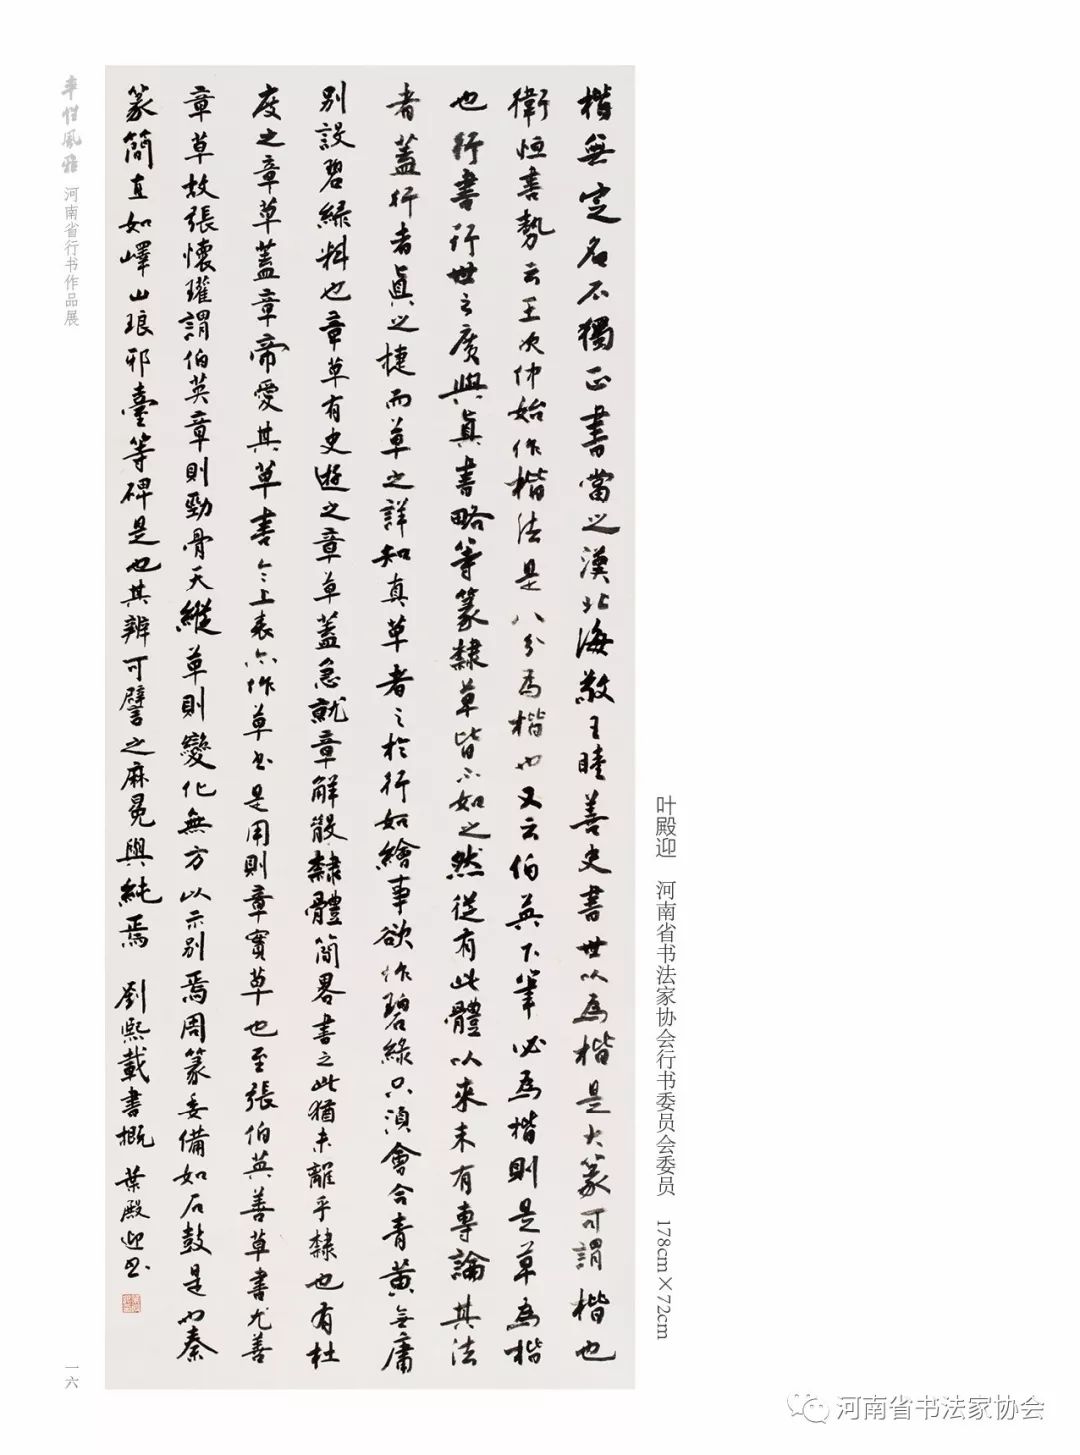 楷無定名不獨正書當之漢北海敬王睦善史書世以為楷是大篆可謂楷也
衛恒書勢云王次仲始作楷法是八分為楷也又云伯英下筆必為楷則是草為楷
也行書行世之廣與真書略等篆隸草皆不如之然從有此體以來未有專論其法
者蓋行者真之捷而草之詳知真草者之於行如繪事欲作碧綠只須會合青黃無庸
別設碧綠料也章草有史遊之章草蓋急就章解散隸體簡畧書之此猶未離乎隸也有杜
度之章草蓋章帝愛其草書令上表亦作草書是用則章實草也至張伯英善草書尤善
章草故張懷瓘謂伯英章則勁骨天縱草則變化無方以示別焉周篆委備如石鼓是也秦
篆簡直如嶧山琅邪臺等碑是也其辨可譬之麻冕與純焉 劉熙載書概 葉殿迎書
叶殿迎 河南省书法家协会行书委员会委员 178cm×72cm
率性風雅 河南省行书作品展
一六
河南省书法家协会